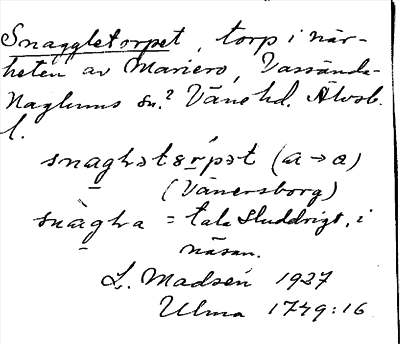 Snaggletorpet, torp i när-
heten av Mariero, Vassända-
Naglums sn.? Väne hd. Älvsb.
l.
snaghətərpət (a → a)
(Vänersborg)
snaghra = tala sluddrigt, i
näsan.
L. Madsén 1937
Ulma 1749:16